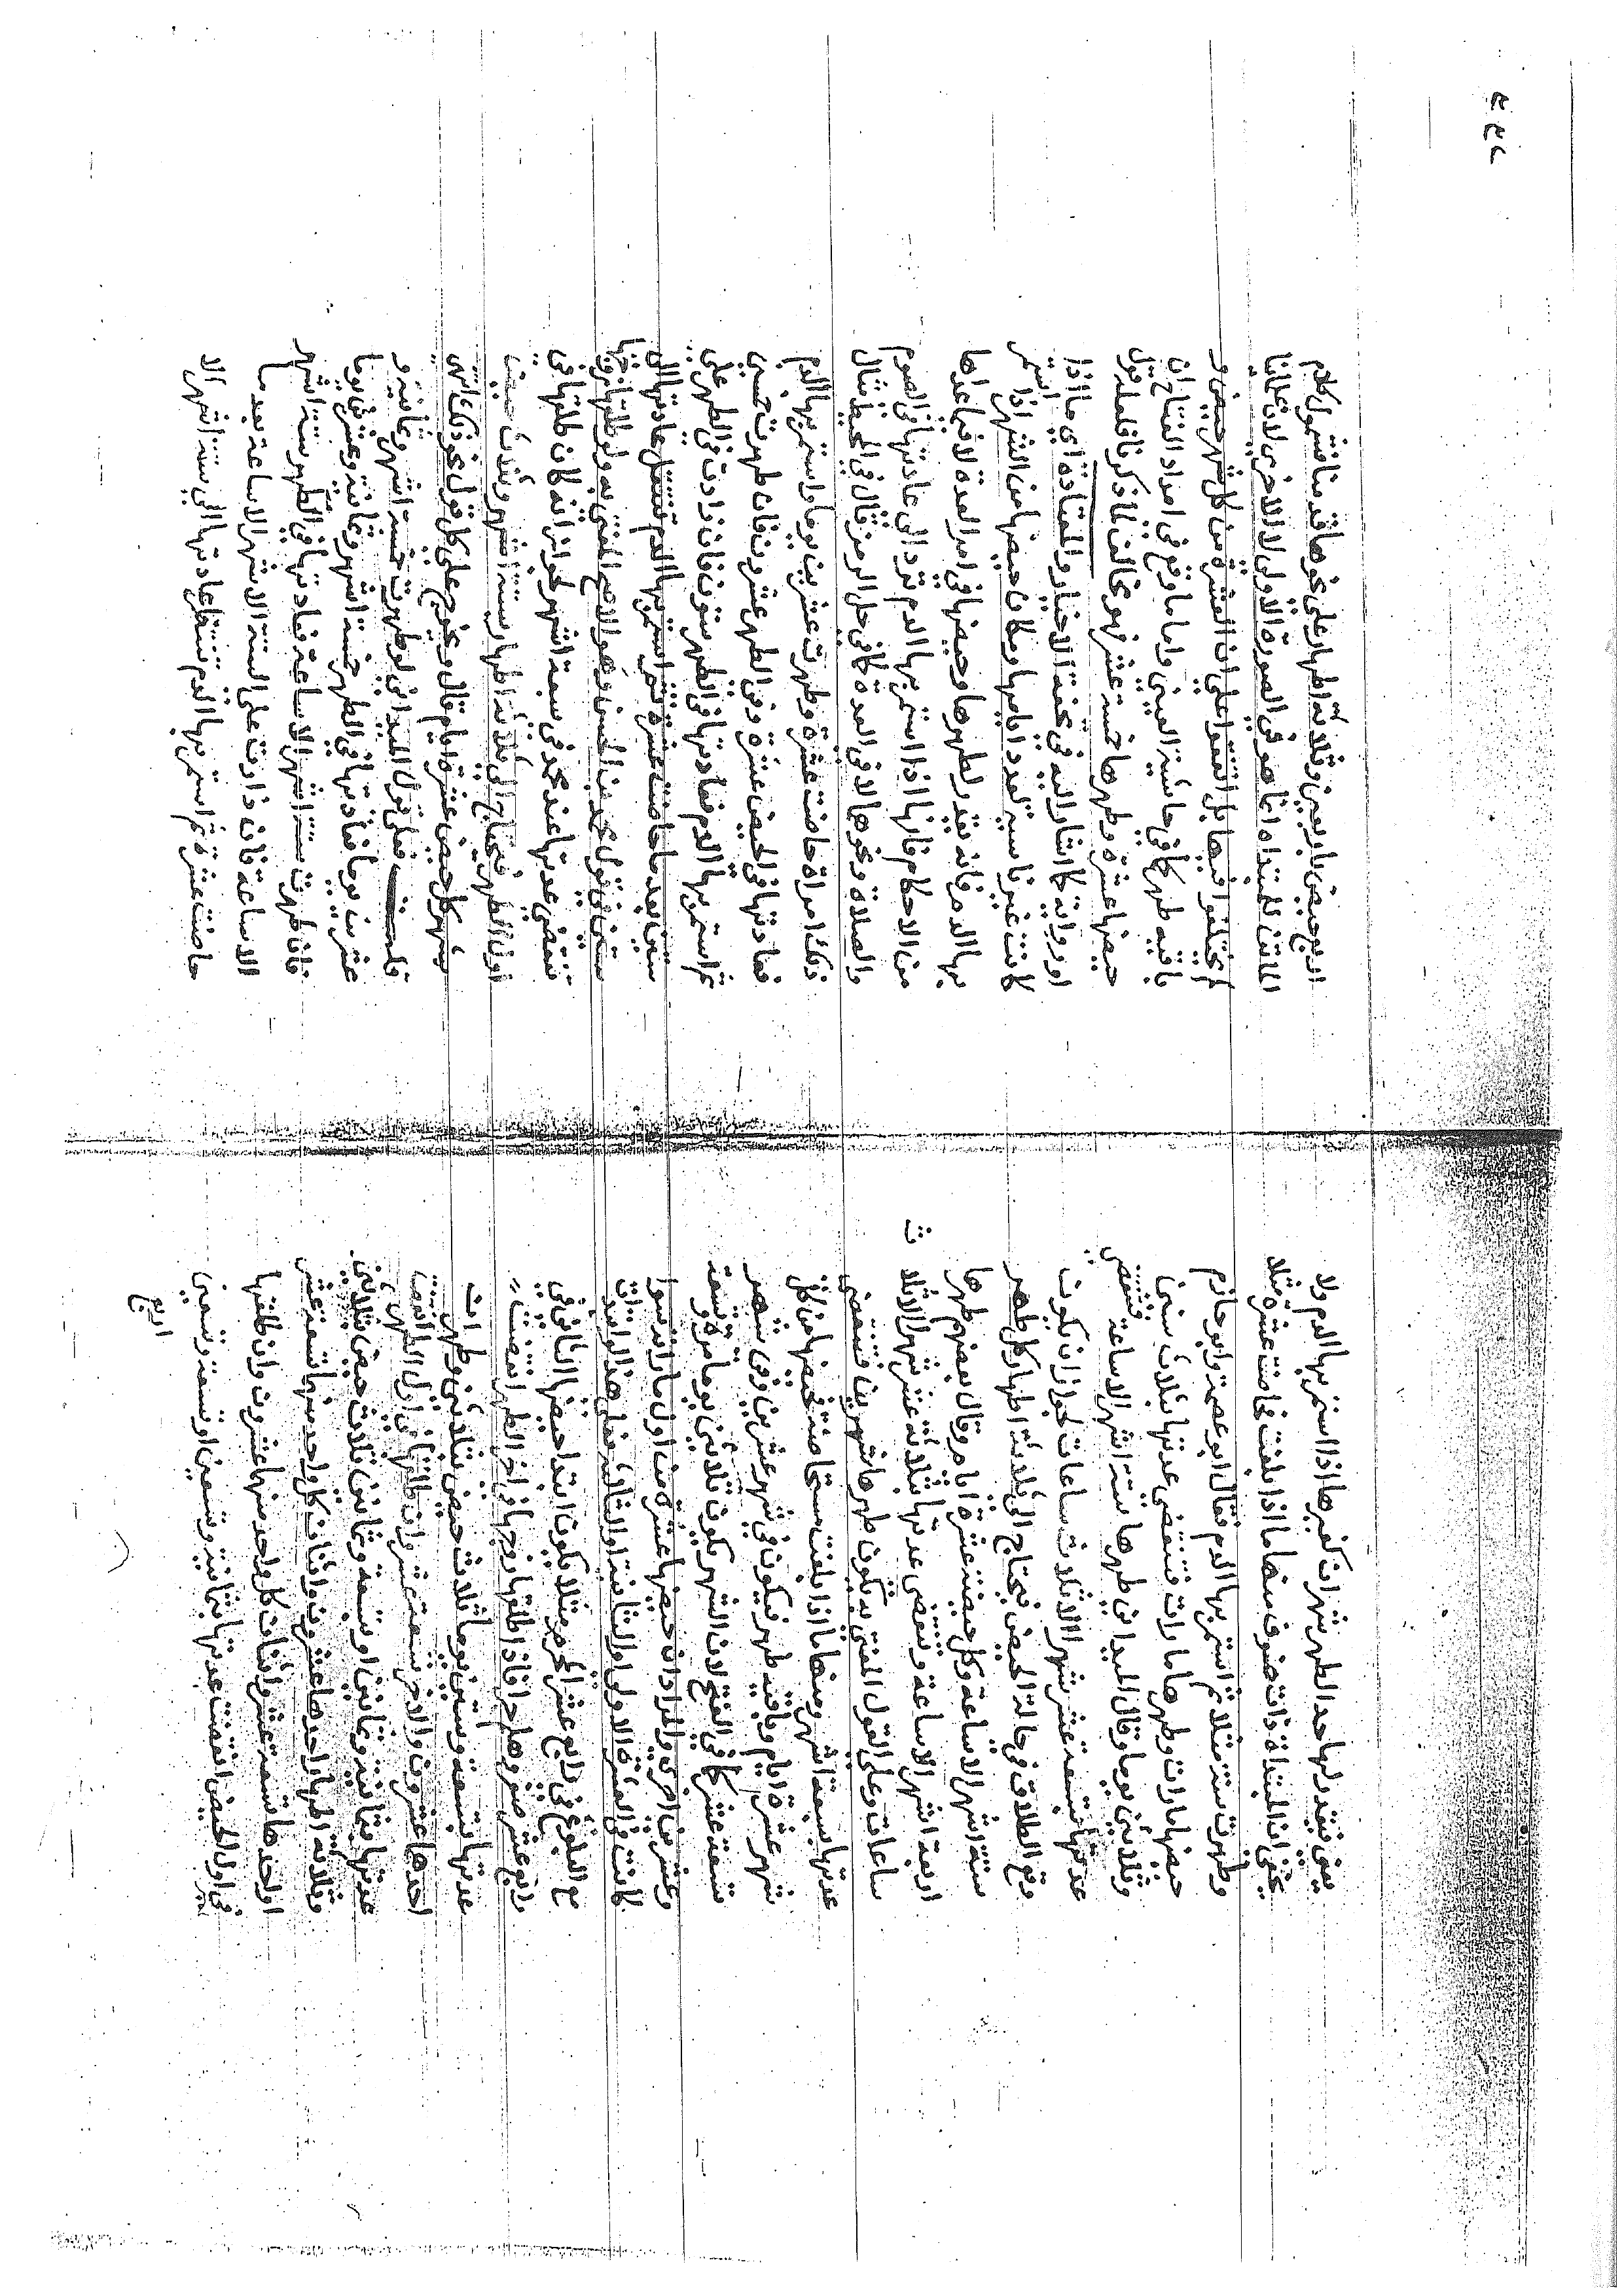 يعني فيقدر لها حد الطهر شهران كغيرها اذا استمر بها الدم ولا
يخفى ان المبتداة ذات صنوف منها ما اذا بلغت فحاضت عشرة مثلا
وطهرت ستة مثلا ثم استمر بها الدم فقال ابو عصمة وابو حازم
حيضها ما رات وطهرها ما رات فتنقضي عدتها بثلاث سنين
وثلاثين يوما وقال الميداني طهرها ستة اشهر الا ساعة فتنقضي
عدتها بتسعة عشر شهر الا ثلاث ساعات لجواز ان يكون
وقع الطلاق في حالة الحيض فيحتاج الى ثلاثة اطهار وكل طهر
ستة اشهر الا ساعة وكل حيضة عشرة ايام وقال بعضهم طهرها
اربعة اشهر الا ساعة وتنقضي عدتها بثلاثة عشر شهر الا ثلاث
ساعات وعلى القول المفتى به يكون طهرها شهرين فتنقضي
عدتها بسبعة اشهر ومنها ما اذا بلغت مستحاضة فحيضها من كل
شهر عشرة ايام وباقيه طهر فيكون في شهر عشرين وفي شهر
تسعة عشر كما في الفتح لان الشهر يكون ثلاثين يوما مرة وتسعة
وعشرين اخرى والمراد ان حيضها عشرة من اول ما رات سوا
كانت في العشرة الاولى او الثانية او الثالثة فعلى هذا لو اتفقت
مع البلوغ في رابع عشر المحرم مثلا يكون ابتدا حيضها الثاني في
رابع عشر صفر وهلم جرا فاذا طلقها زوجها في اخر الطهر انقضت
عدتها بتسعة وستين يوما ثلاث حيض بثلاثين وطهران
احدهما عشرون والاخر تسعة عشر وان طلقها في اول الطهر انقضت
عدتها بثمانية وثمانين او تسعة وثمانين ثلاث حيض بثلاثين
وثلاثة اطهار احدها عشرون واثنان كل واحد منها تسعة عشر
او احدها تسعة عشر واثنان كل واحد منها عشرون وان طلقها
في اول الحيض انقضت عدتها بثمانية وتسعين او تسعة وتسعين
اربع
اربع حيض باربعين وثلاثة اطهار على نحو ما قدمنا فشمول كلام
الماتن للمبتداة انما هو في الصورة الاولى لا الاخرى لان علمانا
لم يختلفوا فيها بل اتفقوا على ان العشرة من كل شهر حيض و
باقيه طهر كما في حاشية العيني واما ما وقع في امداد الفتاح ان
حيضها عشرة وطهرها خمسة عشر فهو مخالف لما ذكرنا فلعله قول
او رواية كما اشار اليه في تحفة الاخيار والمعتادة اي ما اذا
كانت غير ناسية لعدد ايامها ومكان حيضها من الشهر اذا استمر
بها الدم فانه يقدر لطهرها وحيضها في امر العدة لا فيما عداها
من الاحكام فانها اذا استمر بها الدم ترد الى عادتها في الصوم
والصلاة ونحوها لا في العدة كما في حل الرمز قال في المحيط مثال
ذلك امراة حاضت عشرة وطهرت عشرين يوما واستمر بها الدم
فعادتها في الحيض عشرة وفي الطهر عشرون فان طهرت خمسين
ثم استمر بها الدم فعادتها في الطهر ستون فان زادت في الطهر على
ستين بعد ما حاضت عشرة ثم استمر بها الدم فتنتقل عادتها الى
ستين في قول محمد بن الحسن وهو الاصح المفتى به ولو طلقها زوجها
تنقضي عدتها عند محمد في سبعة اشهر لجواز انه كان طلقها في
اول الطهر فيحتاج الى ثلاثة اطهار بستة اشهر وثلاث حيض
بشهر كل حيض عشرة ايام قال ويخرج على كل قول نحو ذلك انتهى
قلت فعلى قول الميداني لو طهرت خمسة اشهر وثمانية و
عشرين يوما فعادتها في الطهر خمسة اشهر وثمانية وعشرون يوما
فان طهرت ستة اشهر الا ساعة فعادتها في الطهر ستة اشهر
الا ساعة فان زادت على الستة الاشهر الا ساعة بعد ما
حاضت عشرة ثم استمر بها الدم تنتقل عادتها الى ستة اشهر الا